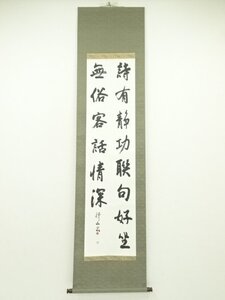 詩有静功聯句好坐
無俗客話情深